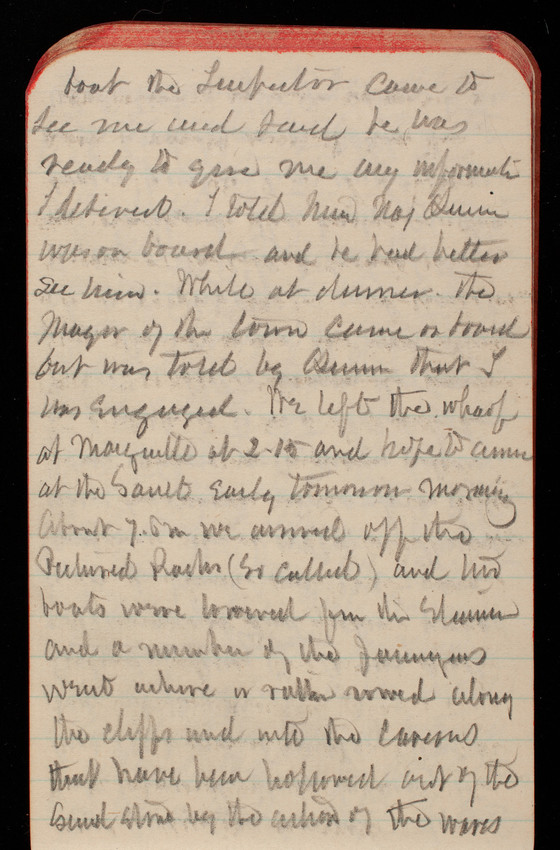 boat the Inspector came to
see me and said he was
ready to give me any informati
I desired. I told him Maj Quinn
was on board and he had better
see him. While at dinner the
Mayor of the town came on board
but was told by Quinn that I
was engaged. We left the wharf
at Marquette at 2-15 and hope to arrive
at the Sault early tomorrow morning
About 7. P.m we arrived off the
Pictured Rocks (so called) and two
boats were lowered from the Steamer
and a number of the passengers
went ashore or rather rowed along
the cliffs and into the caverns
that have been hollowed out of the
Sand stone by the action of the waves